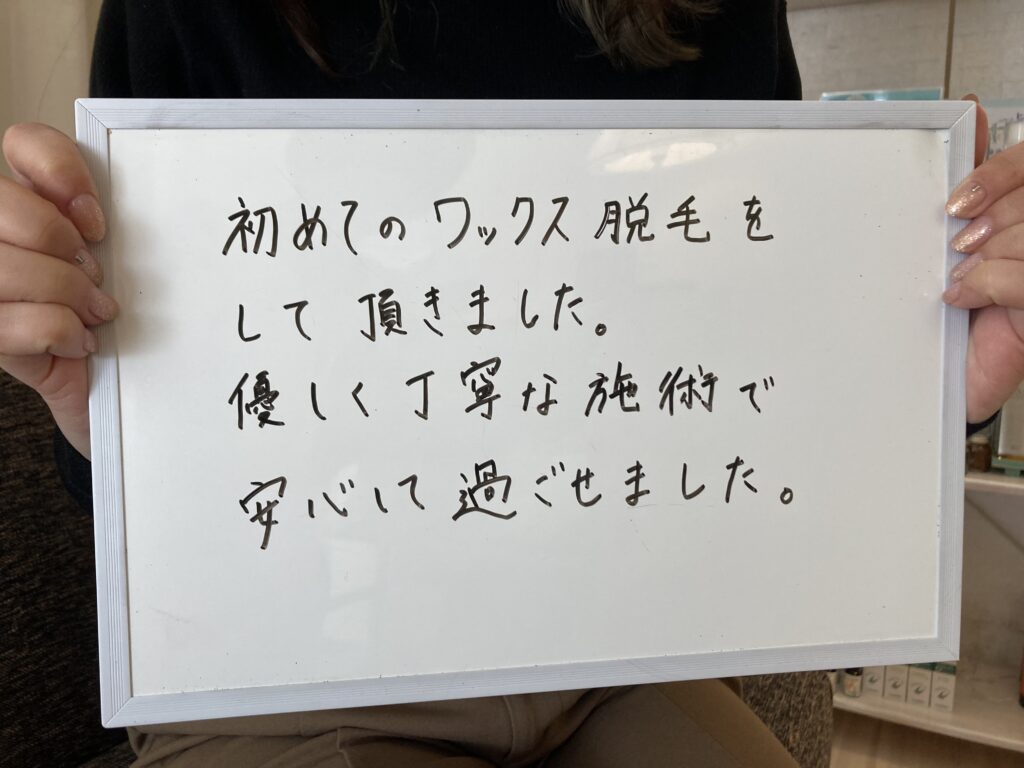 初めてのワックス脱毛を
して頂きました。
優しく丁寧な施術で
安心して過ごせました。